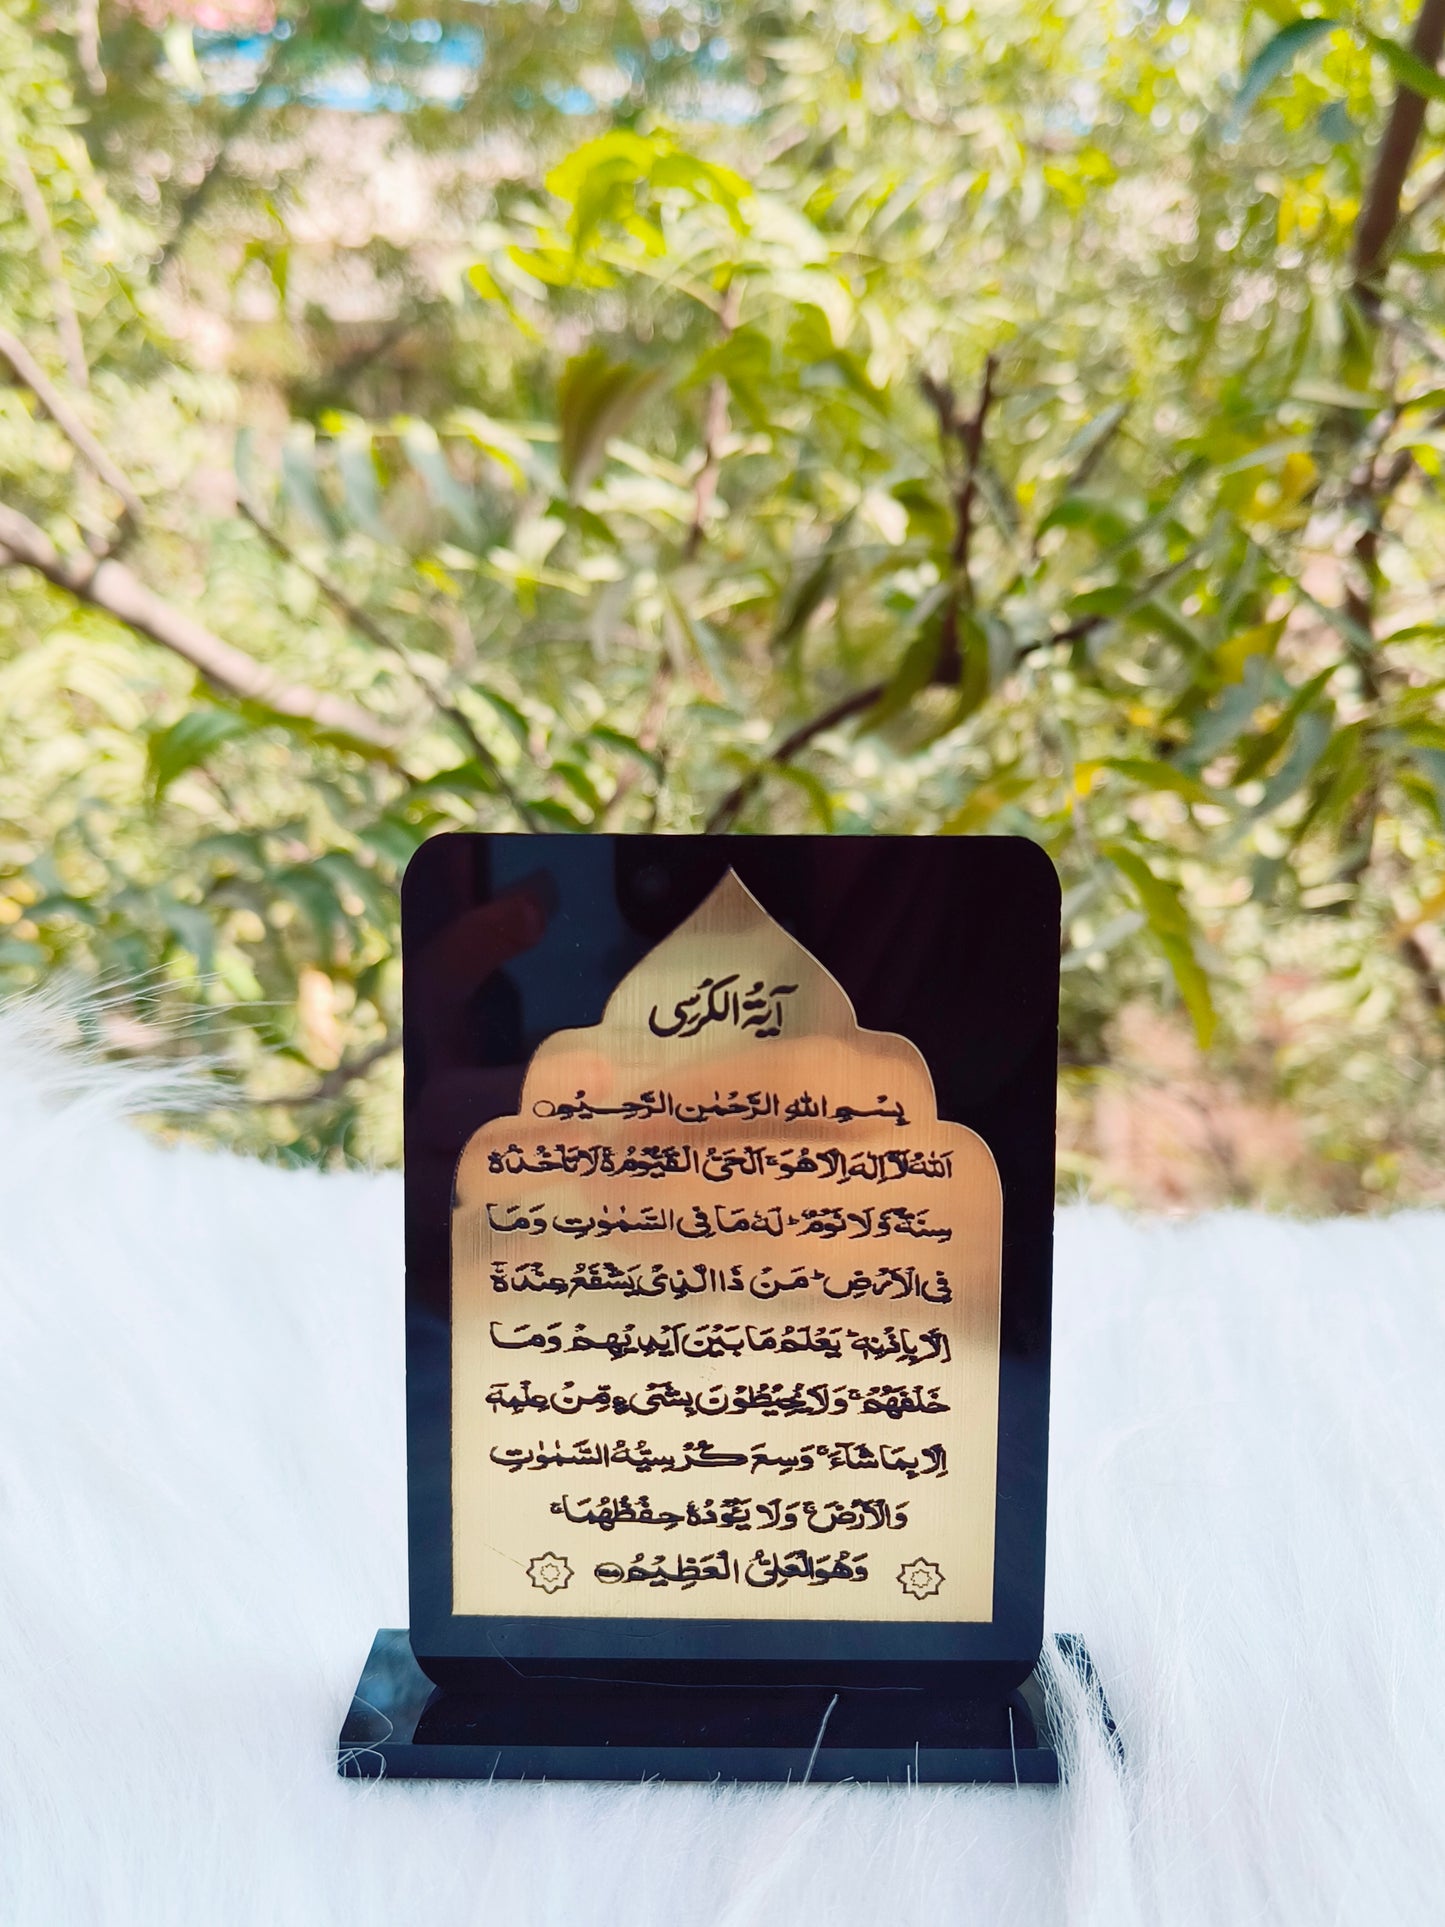 آيَةُ الكُرْسِي
بِسْمِ اللهِ الرَّحْمٰنِ الرَّحِيْمِ
اَللهُ لَآ اِلٰهَ اِلَّا هُوَ ۚ اَلْحَيُّ الْقَيُّوْمُ ۚ لَا تَاْخُذُهٗ
سِنَةٌ وَّلَا نَوْمٌ ؕ لَهٗ مَا فِي السَّمٰوٰتِ وَمَا
فِي الْاَرْضِ ؕ مَنْ ذَا الَّذِيْ يَشْفَعُ عِنْدَهٗۤ
اِلَّا بِاِذْنِهٖ ؕ يَعْلَمُ مَا بَيْنَ اَيْدِيْهِمْ وَمَا
خَلْفَهُمْ ۚ وَلَا يُحِيْطُوْنَ بِشَيْءٍ مِّنْ عِلْمِهٖۤ
اِلَّا بِمَا شَآءَ ۚ وَسِعَ كُرْسِيُّهُ السَّمٰوٰتِ
وَالْاَرْضَ ۚ وَلَا يَـُٔوْدُهٗ حِفْظُهُمَا ۚ
وَهُوَ الْعَلِيُّ الْعَظِيْمُ